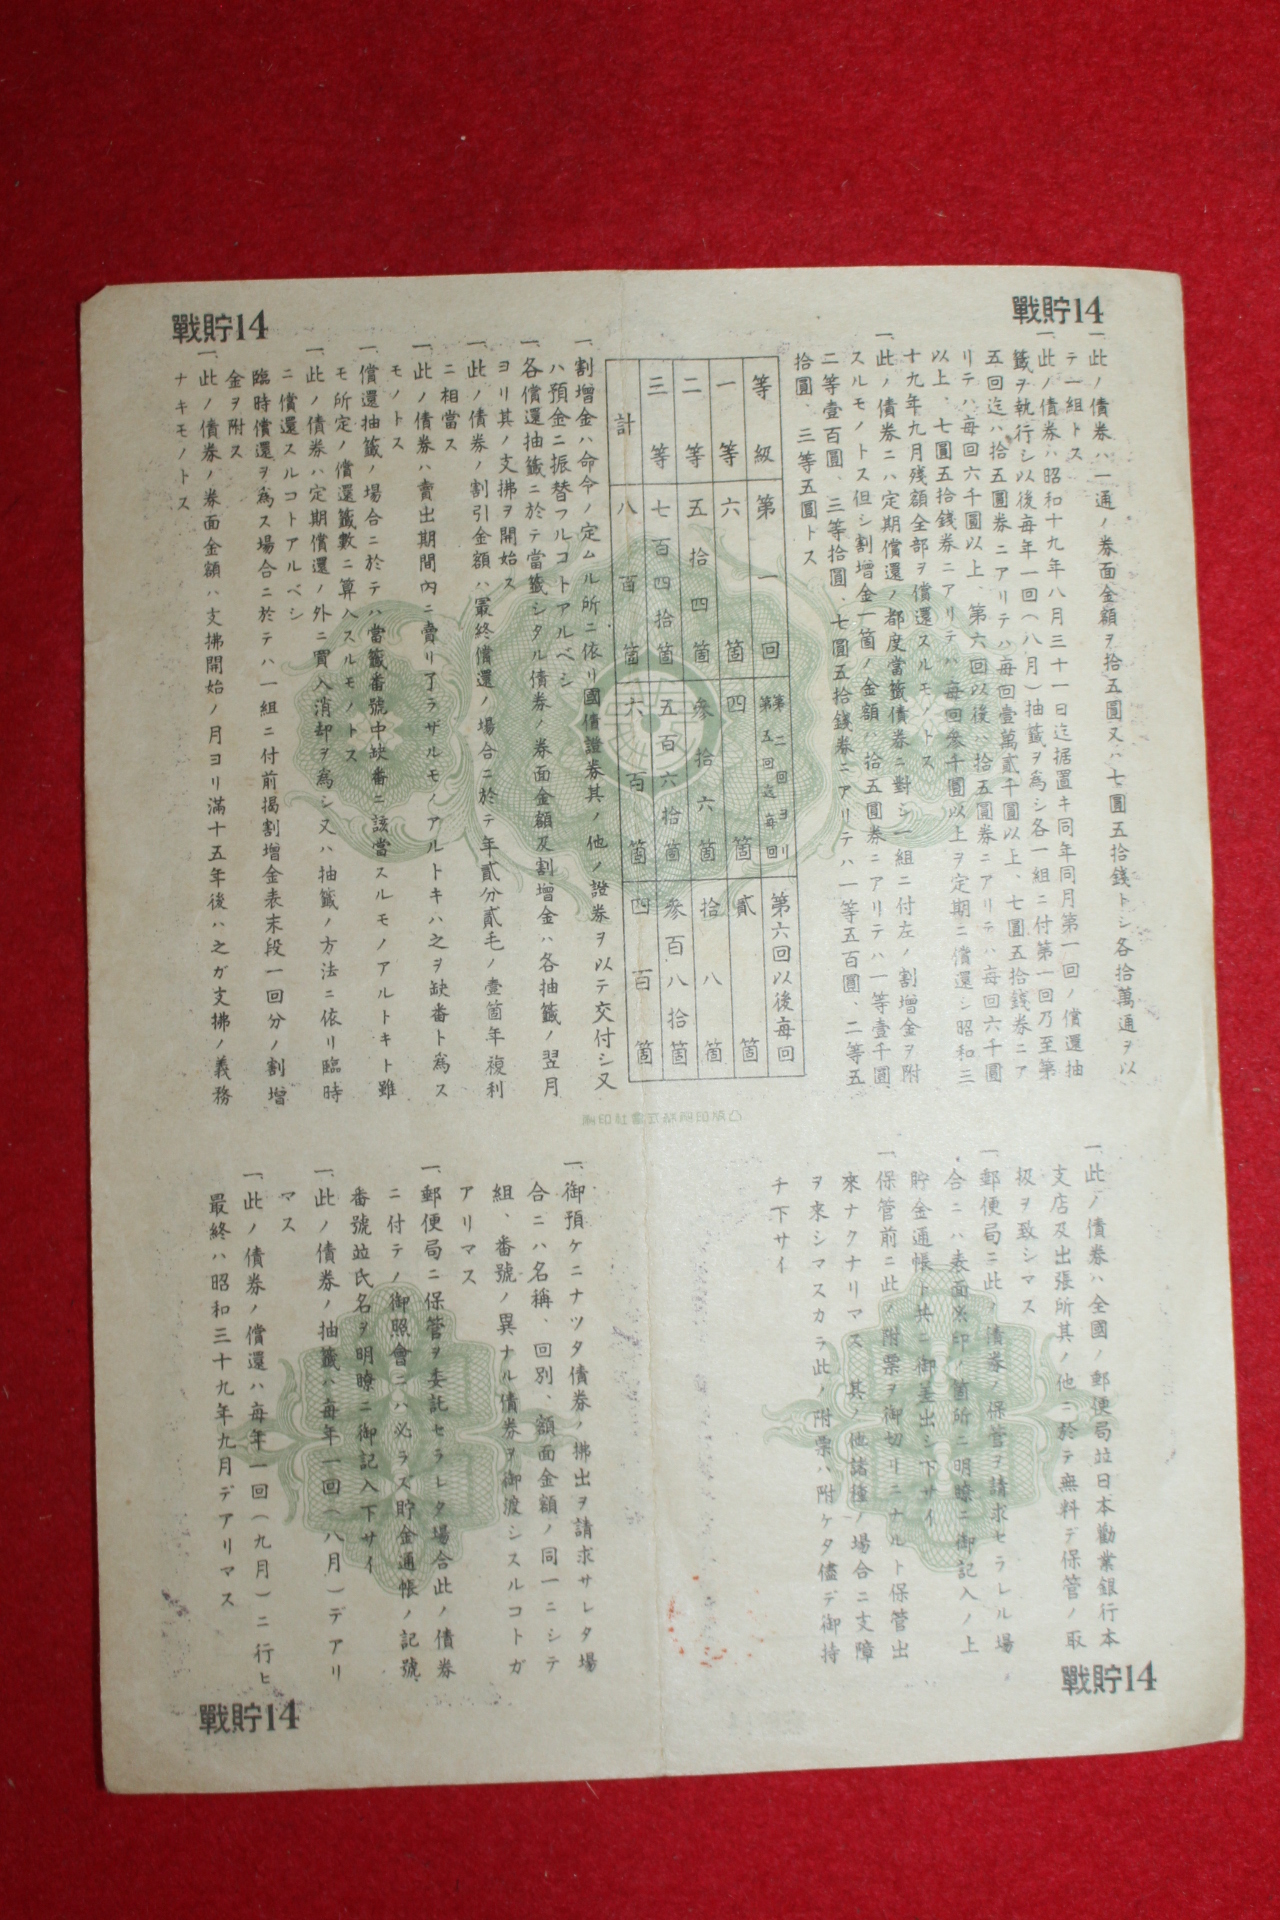 戰貯14
戰貯14
一、此ノ債券ハ一通ノ券面金額ヲ拾五圓又ハ七圓五拾錢トシ各拾萬通ヲ以
テ一組トス
一、此ノ債券ハ昭和十九年八月三十一日迄据置キ同年同月第一回ノ償還抽
籤ヲ執行シ以後每年一回(八月)抽籤ヲ爲シ各一組ニ付第一回乃至第
五回迄ハ拾五圓券ニアリテハ每回壹萬貳千圓以上、七圓五拾錢券ニア
リテハ每回六千圓以上、第六回以後ハ拾五圓券ニアリテハ每回六千圓
以上、七圓五拾錢券ニアリテハ每回參千圓以上ヲ定期ニ償還シ昭和三
十九年九月殘額全部ヲ償還スルモノトス
一、此ノ債券ニハ定期償還ノ都度當籤債券ニ對シ一組ニ付左ノ割增金ヲ附
スルモノトス但シ割增金一箇ノ金額ハ拾五圓券ニアリテハ一等壹千圓、
二等壹百圓、三等拾圓、七圓五拾錢券ニアリテハ一等五百圓、二等五
拾圓、三等五圓トス
等級 第一回 第二回ヨリ第五回迄每回 第六回以後每回
一等 六箇 四箇 貳箇
二等 五拾四箇 參拾六箇 拾八箇
三等 七百四拾箇 五百六拾箇 參百八拾箇
計 八百箇 六百箇 四百箇
一、割增金ハ命令ノ定ムル所ニ依リ國債證券其ノ他ノ證券ヲ以テ交付シ又
ハ預金ニ振替フルコトアルベシ
一、各償還抽籤ニ於テ當籤シタル債券ノ券面金額及割增金ハ各抽籤ノ翌月
ヨリ其ノ支拂ヲ開始ス
一、此ノ債券ノ割引金額ハ最終償還ノ場合ニ於テ年貳分貳毛ノ壹箇年複利
ニ相當ス
一、此ノ債券ハ賣出期間內ニ賣リ了ラザルモノアルトキハ之ヲ缺番ト爲ス
モノトス
一、償還抽籤ノ場合ニ於テハ當籤番號中缺番ニ該當スルモノアルトキト雖
モ所定ノ償還籤數ニ算入スルモノトス
一、此ノ債券ハ定期償還ノ外ニ買入消却ヲ爲シ又ハ抽籤ノ方法ニ依リ臨時
ニ償還スルコトアルベシ
臨時償還ヲ爲ス場合ニ於テハ一組ニ付前揭割增金表末段一回分ノ割增
金ヲ附ス
一、此ノ債券ノ券面金額ハ支拂開始ノ月ヨリ滿十五年後ハ之ガ支拂ノ義務
ナキモノトス
一、此ノ債券ハ全國ノ郵便局竝日本勸業銀行本
支店及出張所其ノ他ニ於テ無料デ保管ノ取
扱ヲ致シマス
一、郵便局ニ此ノ債券ノ保管ヲ請求セラレル場
合ニハ表面※印ノ箇所ニ明瞭ニ御記入ノ上
貯金通帳ト共ニ御差出シ下サイ
一、保管前ニ此ノ附票ヲ御切リニナルト保管出
來ナクナリマス 其ノ他諸種ノ場合ニ支障
ヲ來シマスカラ此ノ附票ハ附ケタ儘デ御持
チ下サイ
一、御預ケニナツタ債券ノ拂出ヲ請求サレタ場
合ニハ名稱、回別、額面金額ノ同一ニシテ
組、番號ノ異ナル債券ヲ御渡シスルコトガ
アリマス
一、郵便局ニ保管ヲ委託セラレタ場合此ノ債券
ニ付テノ御照會ニハ必ラズ貯金通帳ノ記號
番號竝氏名ヲ明瞭ニ御記入下サイ
一、此ノ債券ノ抽籤ハ每年一回(八月)デアリ
マス
一、此ノ債券ノ償還ハ每年一回(九月)ニ行ヒ
最終ハ昭和三十九年九月デアリマス
戰貯14
戰貯14